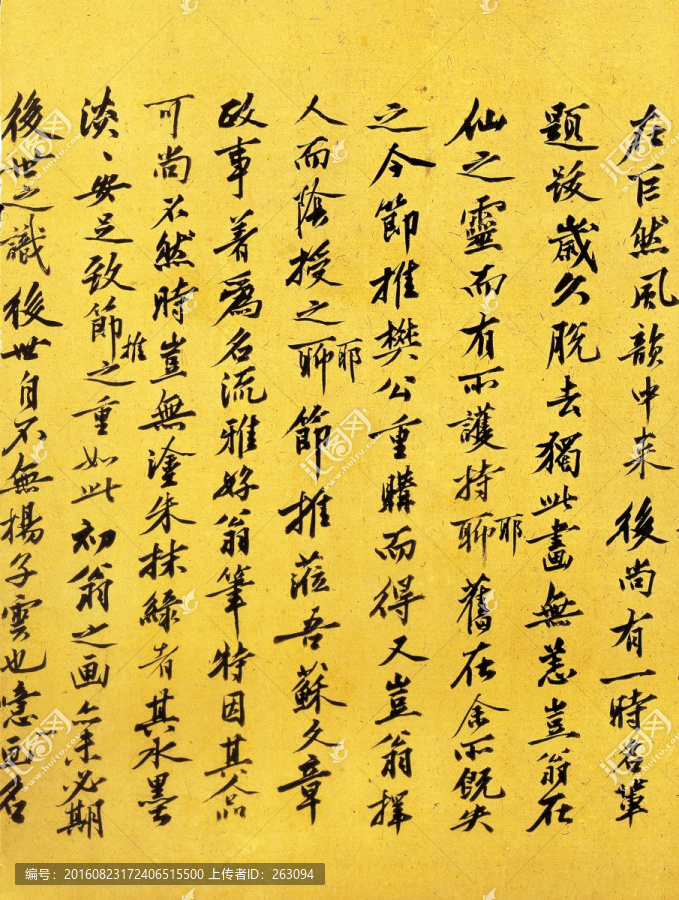 在巨然風韻中来後尚有一時名輩
題跋歲久脫去獨此畫無恙豈翁在
仙之靈而有所護持聊耶舊在余所既失
之今節推樊公重購而得又豈翁擇
人而陰授之聊耶節推蒞吾蘇文章
政事著爲名流雅好翁筆特因其人品
可尚不然時豈無塗朱抹綠者其水墨
淡、安足致節推之重如此初翁之画亦未必期
後世之識後世自不無揚子雲也噫画名
编号：20160823172406515500 上传者ID：263094